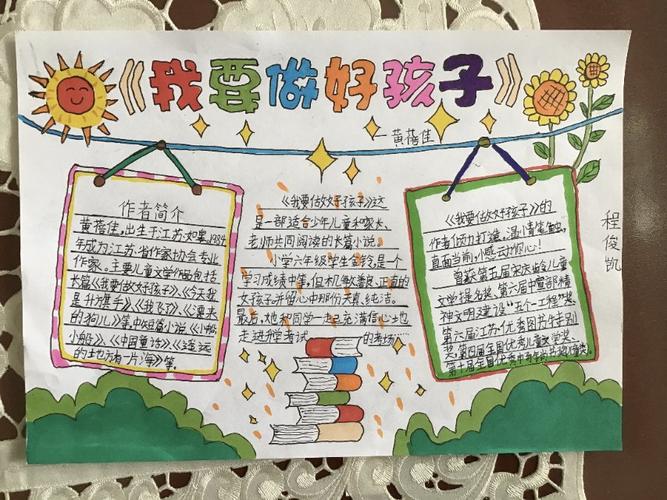 《我要做好孩子》
—黄蓓佳
作者简介
黄蓓佳,出生于江苏如皋,1984
年成为江苏省作家协会专业
作家。主要儿童文学作品包括
长篇《我要做好孩子》、《今天我
是升旗手》、《我飞了》、《漂来
的狗儿》等,中短篇小说《小船,
小船》、《中国童话》、《遥远
的地方有一片海》等。
《我要做好孩子》这
是一部适合少年儿童和家长、
老师共同阅读的长篇小说。
小学六年级学生金铃,是一个
学习成绩中等,但机敏善良、正直的
女孩子并留心中那份天真、纯洁。
最后,她和同学一起充满信心地
走进升学考试的考场。
《我要做好孩子》的
作者倾力打造,温情
直面当前,小感动
曾获第五届宋庆龄儿童
文学提名奖、第六届中宣部精
神文明建设"五个一工程"奖、
第六届江苏优秀图书特别
奖、第四届全国优秀儿童文学奖、
程俊凯